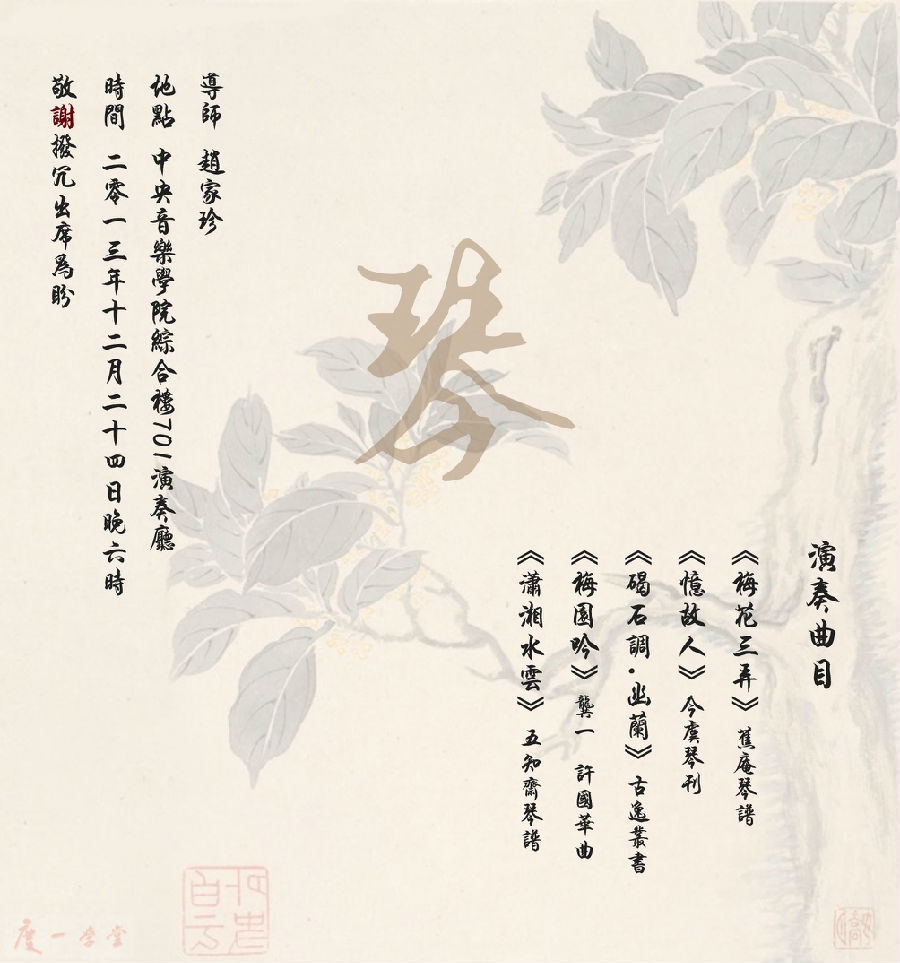 演奏曲目
《梅花三弄》 蕉庵琴譜
《憶故人》 今虞琴刊
《碣石調·幽蘭》 古逸叢書
《梅園吟》 龔一 許國華曲
《瀟湘水雲》 五知齋琴譜
琴
導師 趙家珍
地點 中央音樂學院綜合樓701演奏廳
時間 二零一三年十二月二十四日晚六時
敬謝撥冗出席為盼
度一學堂